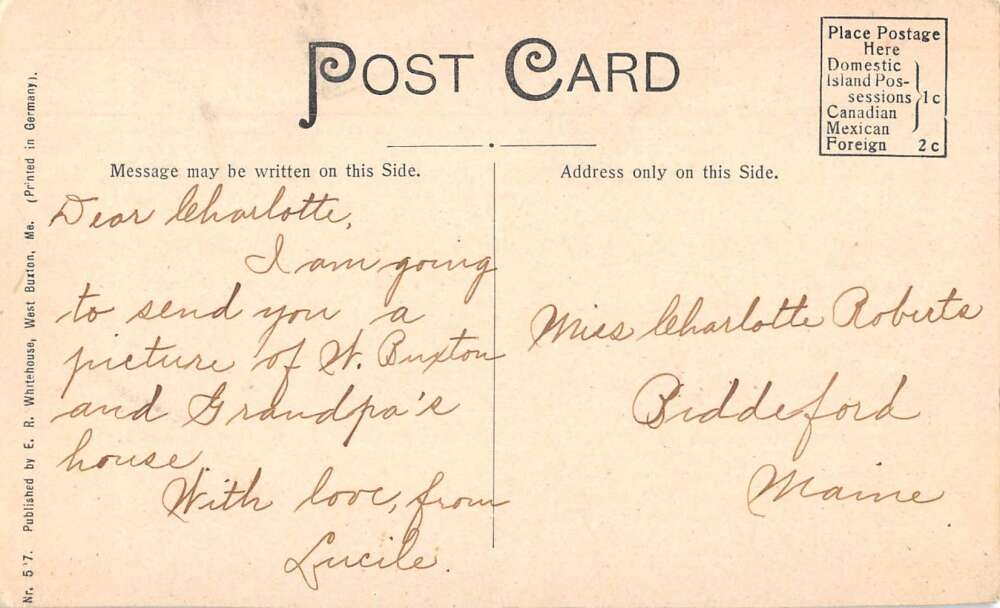 POST CARD
Place Postage
Here
Domestic
Island Pos-
sessions
Canadian
Mexican
1c
Foreign 2c
Message may be written on this Side.
Address only on this Side.
Dear Charlotte,
I am going
to send you a
picture of W. Buxton
and Grandpa's
house
With love, from
Lucile.
Miss Charlotte Roberts
Biddeford
Maine
Nr. 5'7. Published by E. R. Whitehouse, West Buxton, Me. (Printed in Germany).